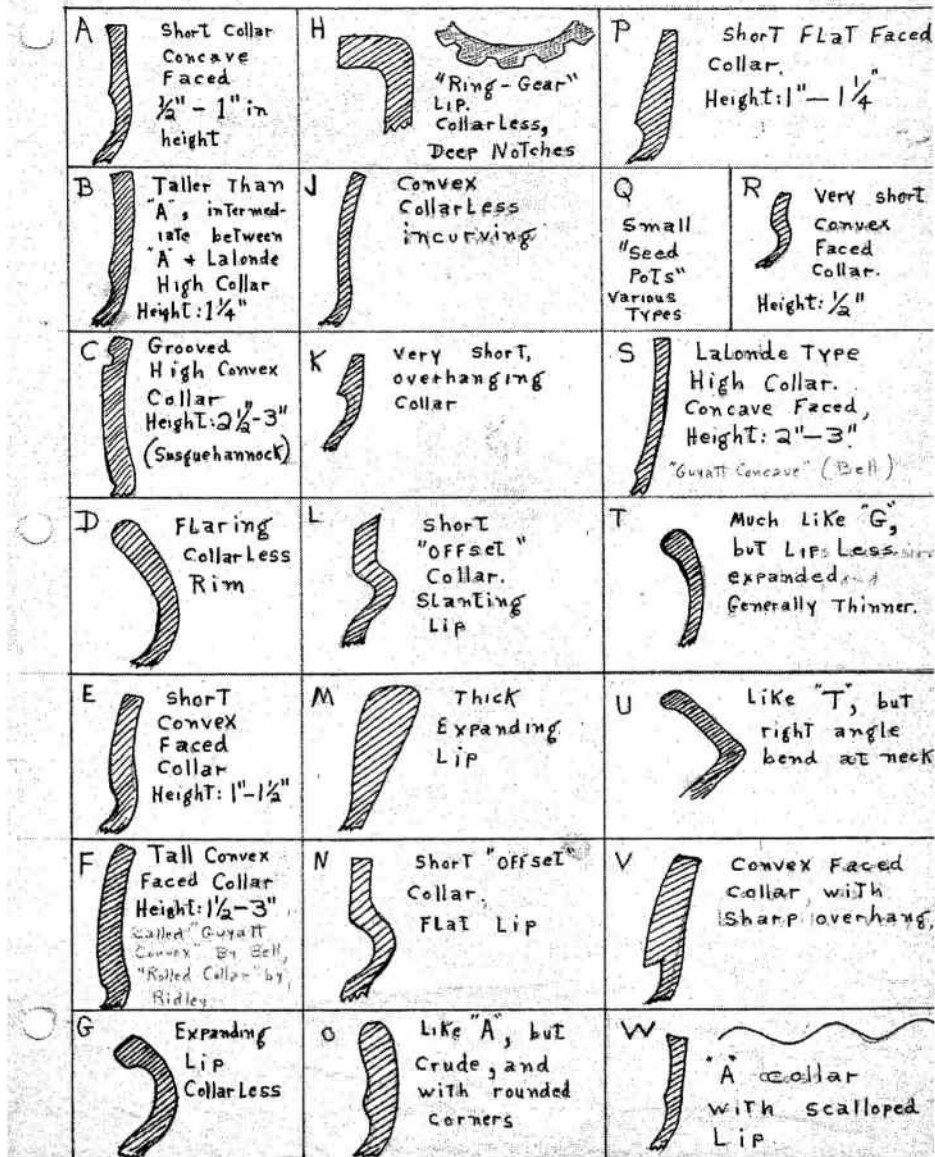 A
Short Collar
Concave
Faced
½" - 1" in
height
B
Taller Than
"A", intermed-
iate between
"A" + Lalonde
High Collar
Height: 1¼"
C
Grooved
High Convex
Collar
Height: 2½"-3"
(Susquehannock)
D
Flaring
Collarless
Rim
E
Short
Convex
Faced
Collar
Height: 1"-1½"
F
Tall Convex
Faced Collar
Height: 1½-3"
Called "Guyatt
Convex" By Bell,
"Rolled Collar" by
Ridley
G
Expanding
Lip
Collarless
H
"Ring-Gear"
Lip.
Collarless,
Deep Notches
J
Convex
Collarless
incurving
K
Very short,
overhanging
Collar
L
Short
"Offset"
Collar.
Slanting
Lip
M
Thick
Expanding
Lip
N
Short "Offset"
Collar,
Flat Lip
O
Like "A", but
Crude, and
with rounded
corners
P
Short Flat Faced
Collar.
Height: 1" - 1¼"
Q
Small
"Seed
Pots"
Various
Types
R
Very short
Convex
Faced
Collar.
Height: ½"
S
Lalonde Type
High Collar.
Concave Faced,
Height: 2"-3"
"Guyatt Concave" (Bell)
T
Much Like "G",
but Lips Less
expanded
Generally Thinner.
U
Like "T", but
right angle
bend at neck
V
Convex Faced
Collar with
Sharp overhang.
W
"A" collar
with scalloped
Lip